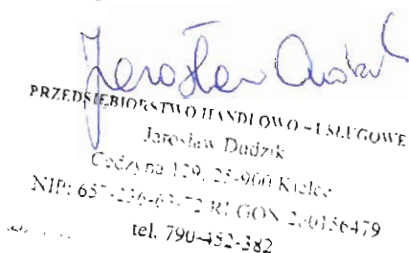 Jarosław Dudzik
PRZEDSIĘBIORSTWO HANDLOWO - USŁUGOWE
Jarosław Dudzik
Cedzyna 129, 25-900 Kielce
NIP: 657-236-63-72 REGON 260156479
tel. 790-452-382